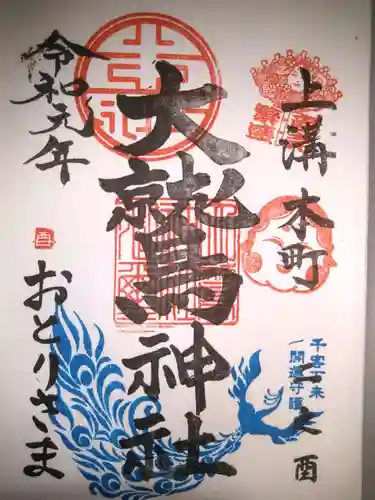 上溝 本町
千客万来
開運守護
二之酉
大鷲神社
令和元年
酉
おとりさま